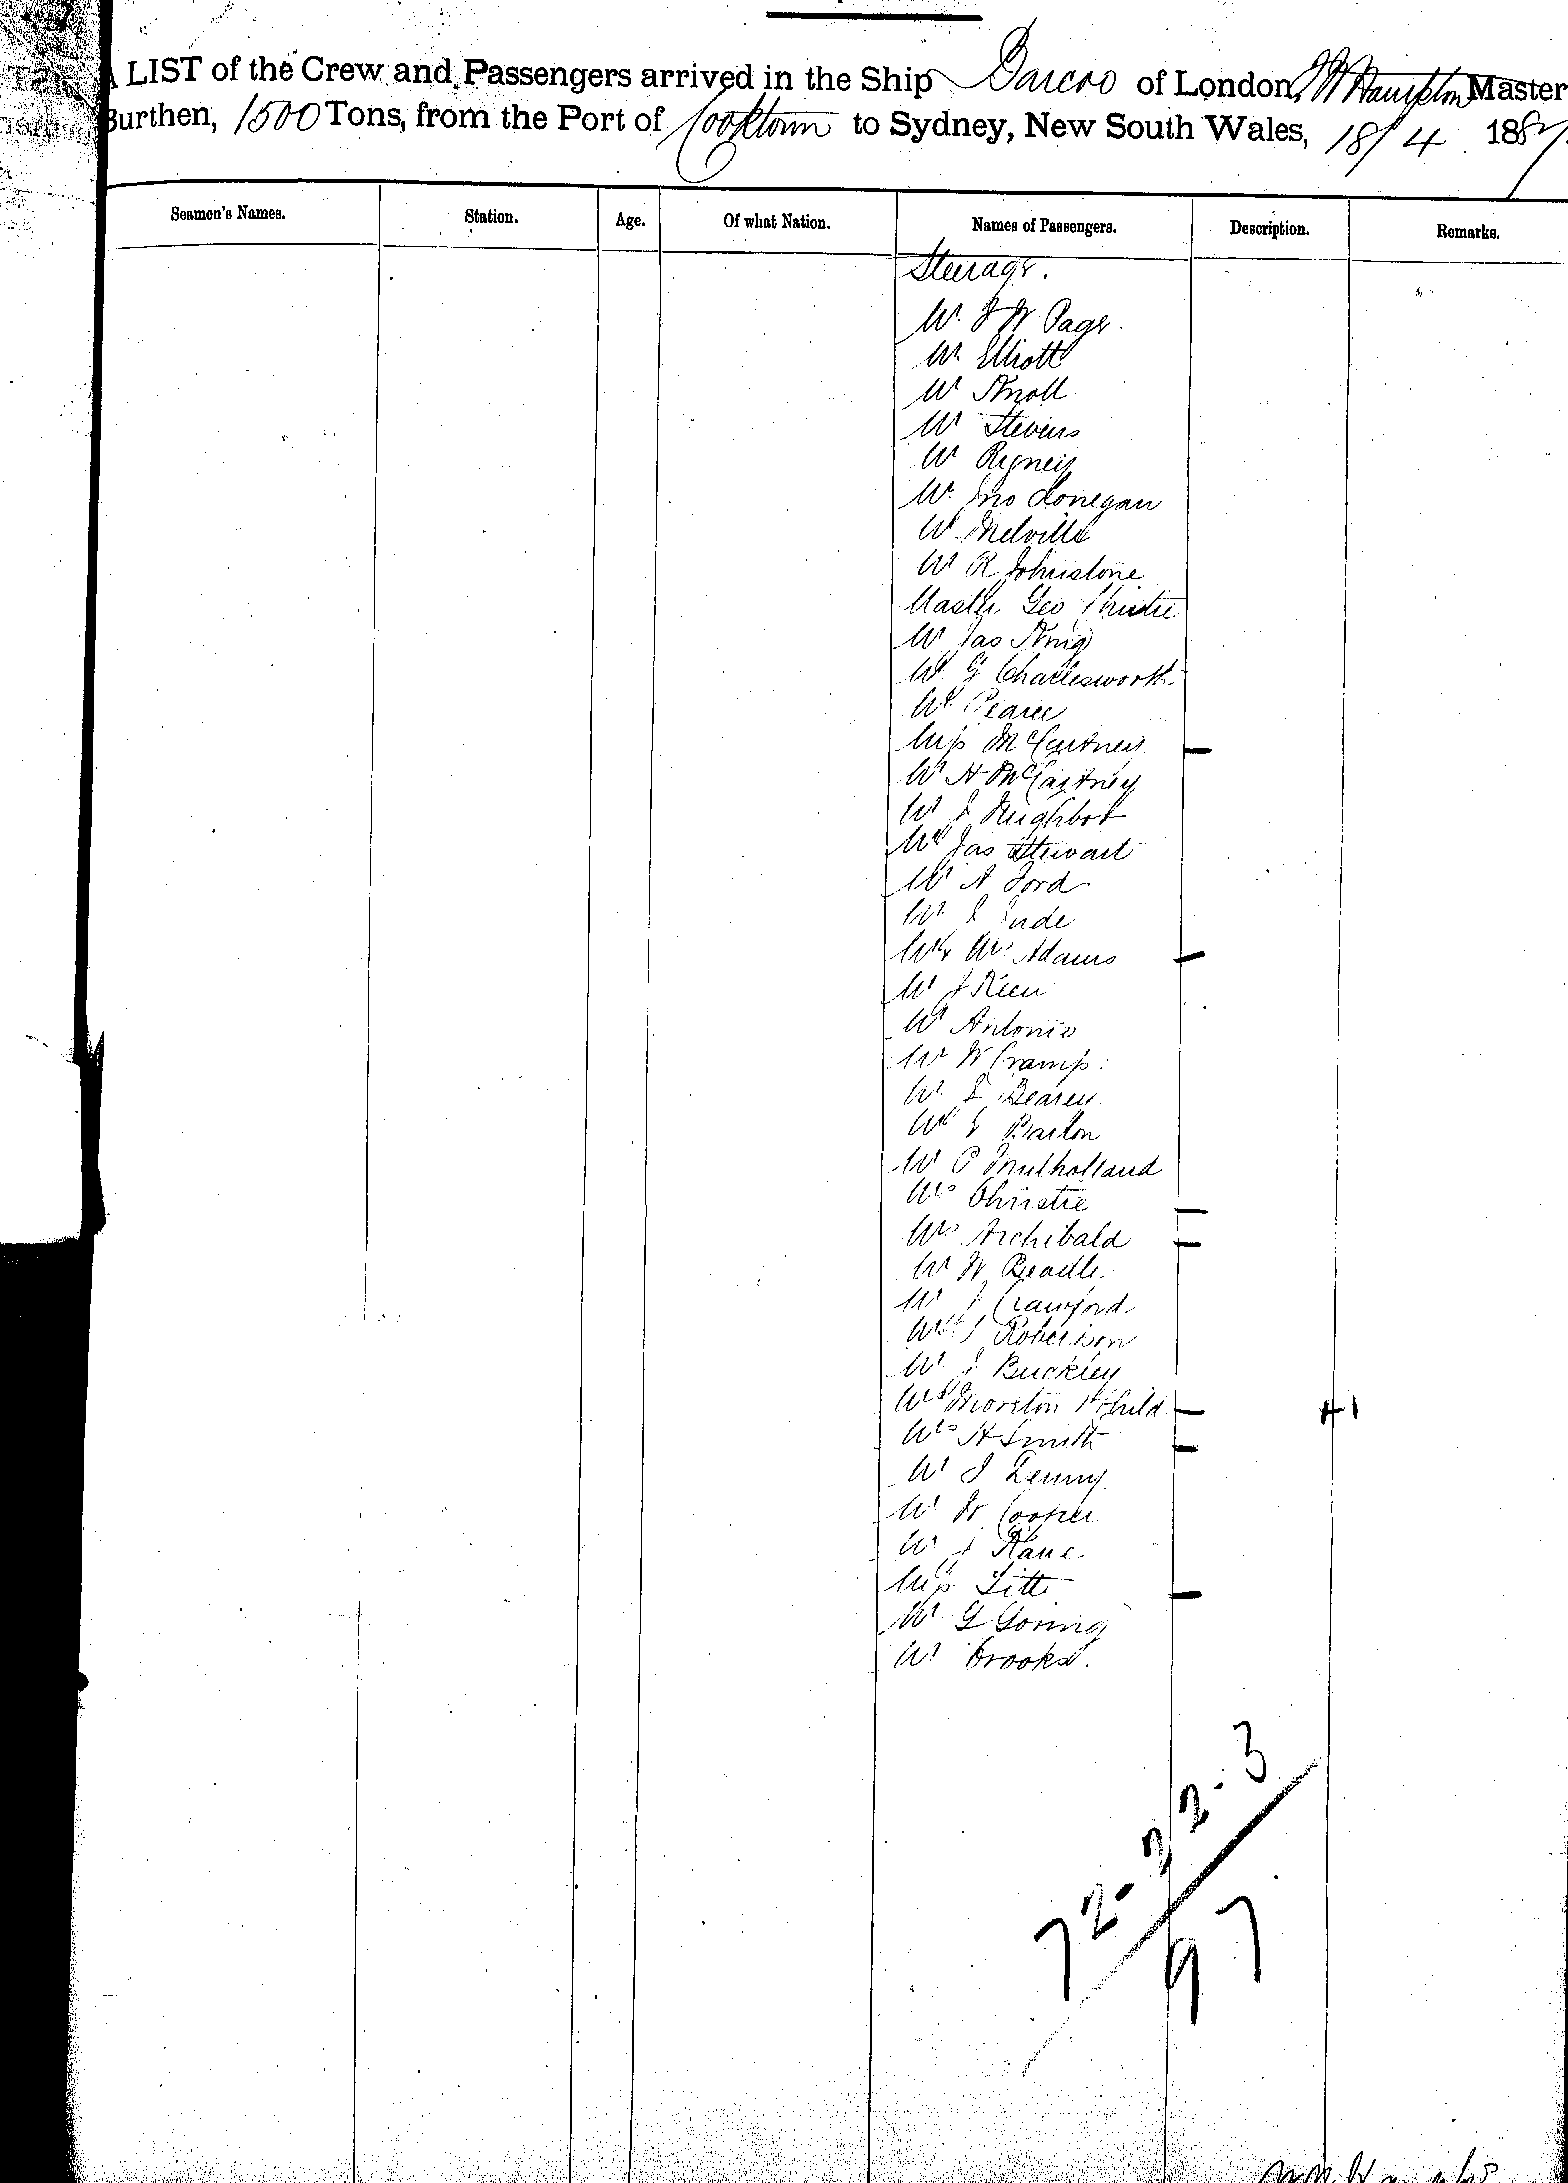 A LIST of the Crew and Passengers arrived in the Ship Barcoo of London, Hampton Master
Burthen, 1500 Tons, from the Port of Cooktown to Sydney, New South Wales, 18/4 188
Seamen's Names. Station. Age. Of what Nation. Names of Passengers. Description. Remarks.
Steerage.
Mr J W Page
Mr Elliott
Mr Knoll
Mr Stevens
Mr Rigney
Mr Jno Lonegan
Mr Melville
Mr R Johnstone
Master Geo Christie
Mr Jas King
Mr G Charlesworth
Mr Pearce
Miss McCartney
Mr H McCartney
Mr J Neighbor
Mr Jas Stewart
Mr A Ford
Mr J Jude
Mr & Mrs Adams
Mr J Keen
Mr Antonio
Mr W Cramp
Mr J
Mr J Barton
Mr P Mulholland
Mrs Christie
Mrs Archibald
Mr W Beadle
Mr J Crawford
Mr J Robertson
Mr J Buckley
Mrs Moreton & Child 1
Mrs H Smith
Mr J Denny
Mr W Cooper
Mr J Kane
Miss Litt
Mr G Goring
Mr Brooks.
72-22-3
97